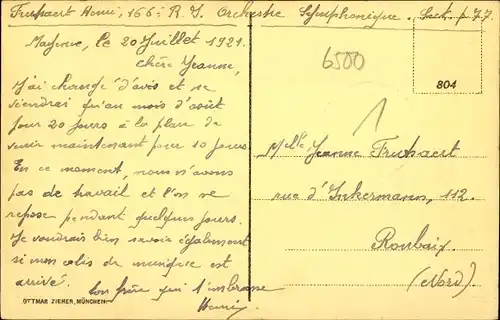 Henri, 166e R. I. Orchestre Symphonique. Sect. p. 77
Mayence, le 20 Juillet 1921.
Chère Jeanne,
J'ai changé d'avis et ne
viendrai qu'au mois d'août
pour 20 jours à la place de
venir maintenant pour 10 jours.
En ce moment, nous n'avons
pas de travail et l'on se
repose pendant quelques jours.
Je voudrais bien savoir également
si mon colis de musique est
arrivé.
ton frère qui t'embrasse
Henri
OTTMAR ZIEHER, MÜNCHEN
6500
804
1
Mlle Jeanne
rue d'Inkermann, 112.
Roubaix
(Nord)